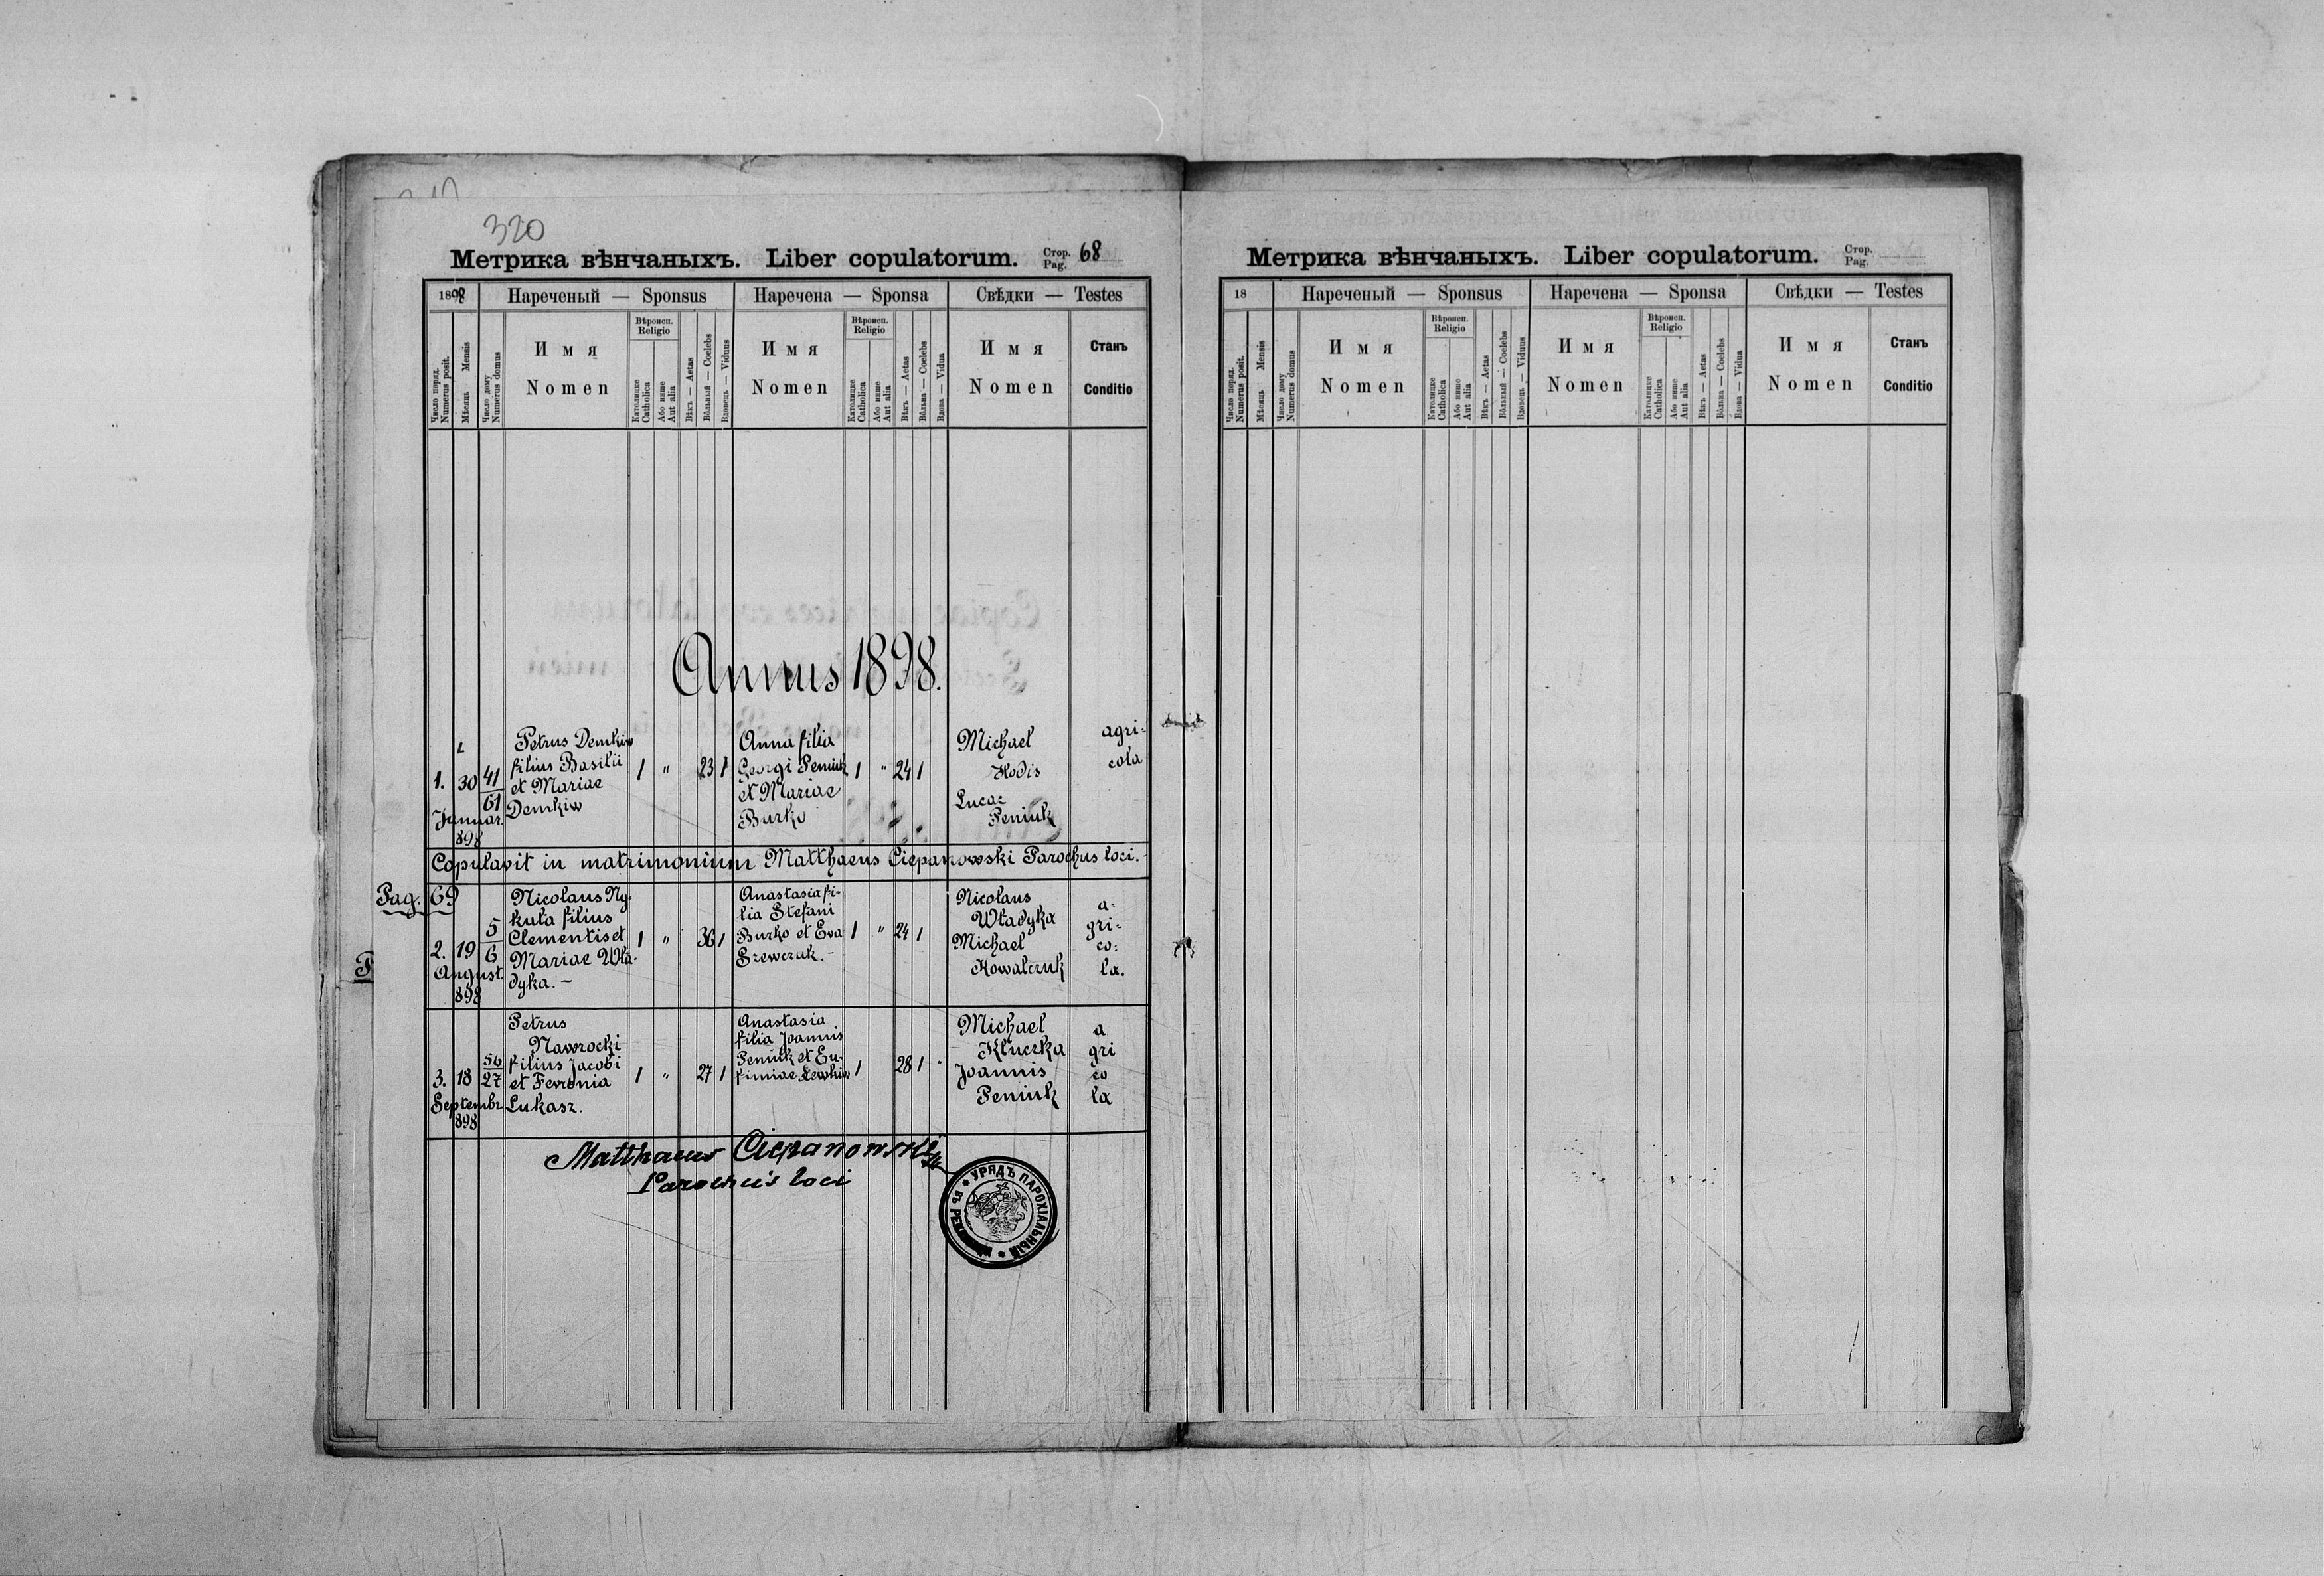 320
Метрика вѣнчаныхъ. Liber copulatorum. Стор. Pag. 68
1898 Нареченый — Sponsus Наречена — Sponsa Свѣдки — Testes
Число поряд. Numerus posit.
Мѣсяць Mensis
Число дому Numerus domus
Имя
Nomen
Вѣроисп. Religio
Католицке Catholica
Або инше Aut alia
Вѣкъ — Aetas
Вôльный — Coelebs
Вдовець — Viduus
Имя
Nomen
Вѣроисп. Religio
Католицке Catholica
Або инше Aut alia
Вѣкъ — Aetas
Вôльна — Coelebs
Вдова — Vidua
Имя
Nomen
Станъ
Conditio
Annus 1898.
1. 30 Januar. 898
41
61
Petrus Demkiw
filius Basilii
et Mariae
Demkiw
1 " 23 1
Anna filia
Georgi Peniuk
et Mariae
Burko
1 " 24 1
Michael
Hodis
Lucac
Peniuk
agri=
cola
Copulavit in matrimonium Matthaeus Ciepanowski Parochus loci.
Pag. 69
2. 19 August. 898
5
6
Nicolaus Ny-
kuła filius
Clementis et
Mariae Wła-
dyka.—
1 " 36 1
Anastasia fi-
lia Stefani
Burko et Eva
Szewczuk.—
1 " 24 1
Nicolaus
Władyka
Michael
Kowalczuk
a=
gri=
co=
la.
3. 18 Septembr. 898
56
27
Petrus
Nawrocki
filius Jacobi
et Fevronia
Lukasz.
1 " 27 1
Anastasia
filia Joannis
Peniuk et Eu-
fimiae Lewkiw
1 28 1
Michael
Kluczka
Joannis
Peniuk
a
gri
co
la
Matthaeus Ciepanowski
Parochus loci
УРЯДЪ ПАРОХІАЛЬНЫЙ
Метрика вѣнчаныхъ. Liber copulatorum. Стор. Pag.
18 Нареченый — Sponsus Наречена — Sponsa Свѣдки — Testes
Число поряд. Numerus posit.
Мѣсяць Mensis
Число дому Numerus domus
Имя
Nomen
Вѣроисп. Religio
Католицке Catholica
Або инше Aut alia
Вѣкъ — Aetas
Вôльный — Coelebs
Вдовець — Viduus
Имя
Nomen
Вѣроисп. Religio
Католицке Catholica
Або инше Aut alia
Вѣкъ — Aetas
Вôльна — Coelebs
Вдова — Vidua
Имя
Nomen
Станъ
Conditio